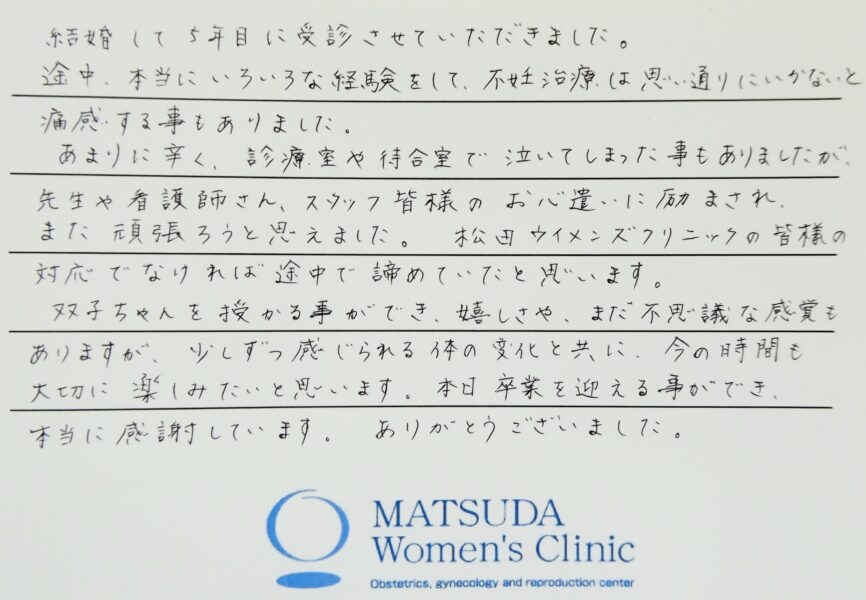 結婚して5年目に受診させていただきました。
途中、本当にいろいろな経験をして、不妊治療は思い通りにいかないと
痛感する事もありました。
あまりに辛く、診療室や待合室で泣いてしまった事もありましたが、
先生や看護師さん、スタッフ皆様のお心遣いに励まされ、
また頑張ろうと思えました。松田ウイメンズクリニックの皆様の
対応でなければ途中で諦めていたと思います。
双子ちゃんを授かる事ができ、嬉しさや、まだ不思議な感覚も
ありますが、少しずつ感じられる体の変化と共に、今の時間も
大切に楽しみたいと思います。本日卒業を迎える事ができ、
本当に感謝しています。ありがとうございました。
MATSUDA
Women's Clinic
Obstetrics, gynecology and reproduction center